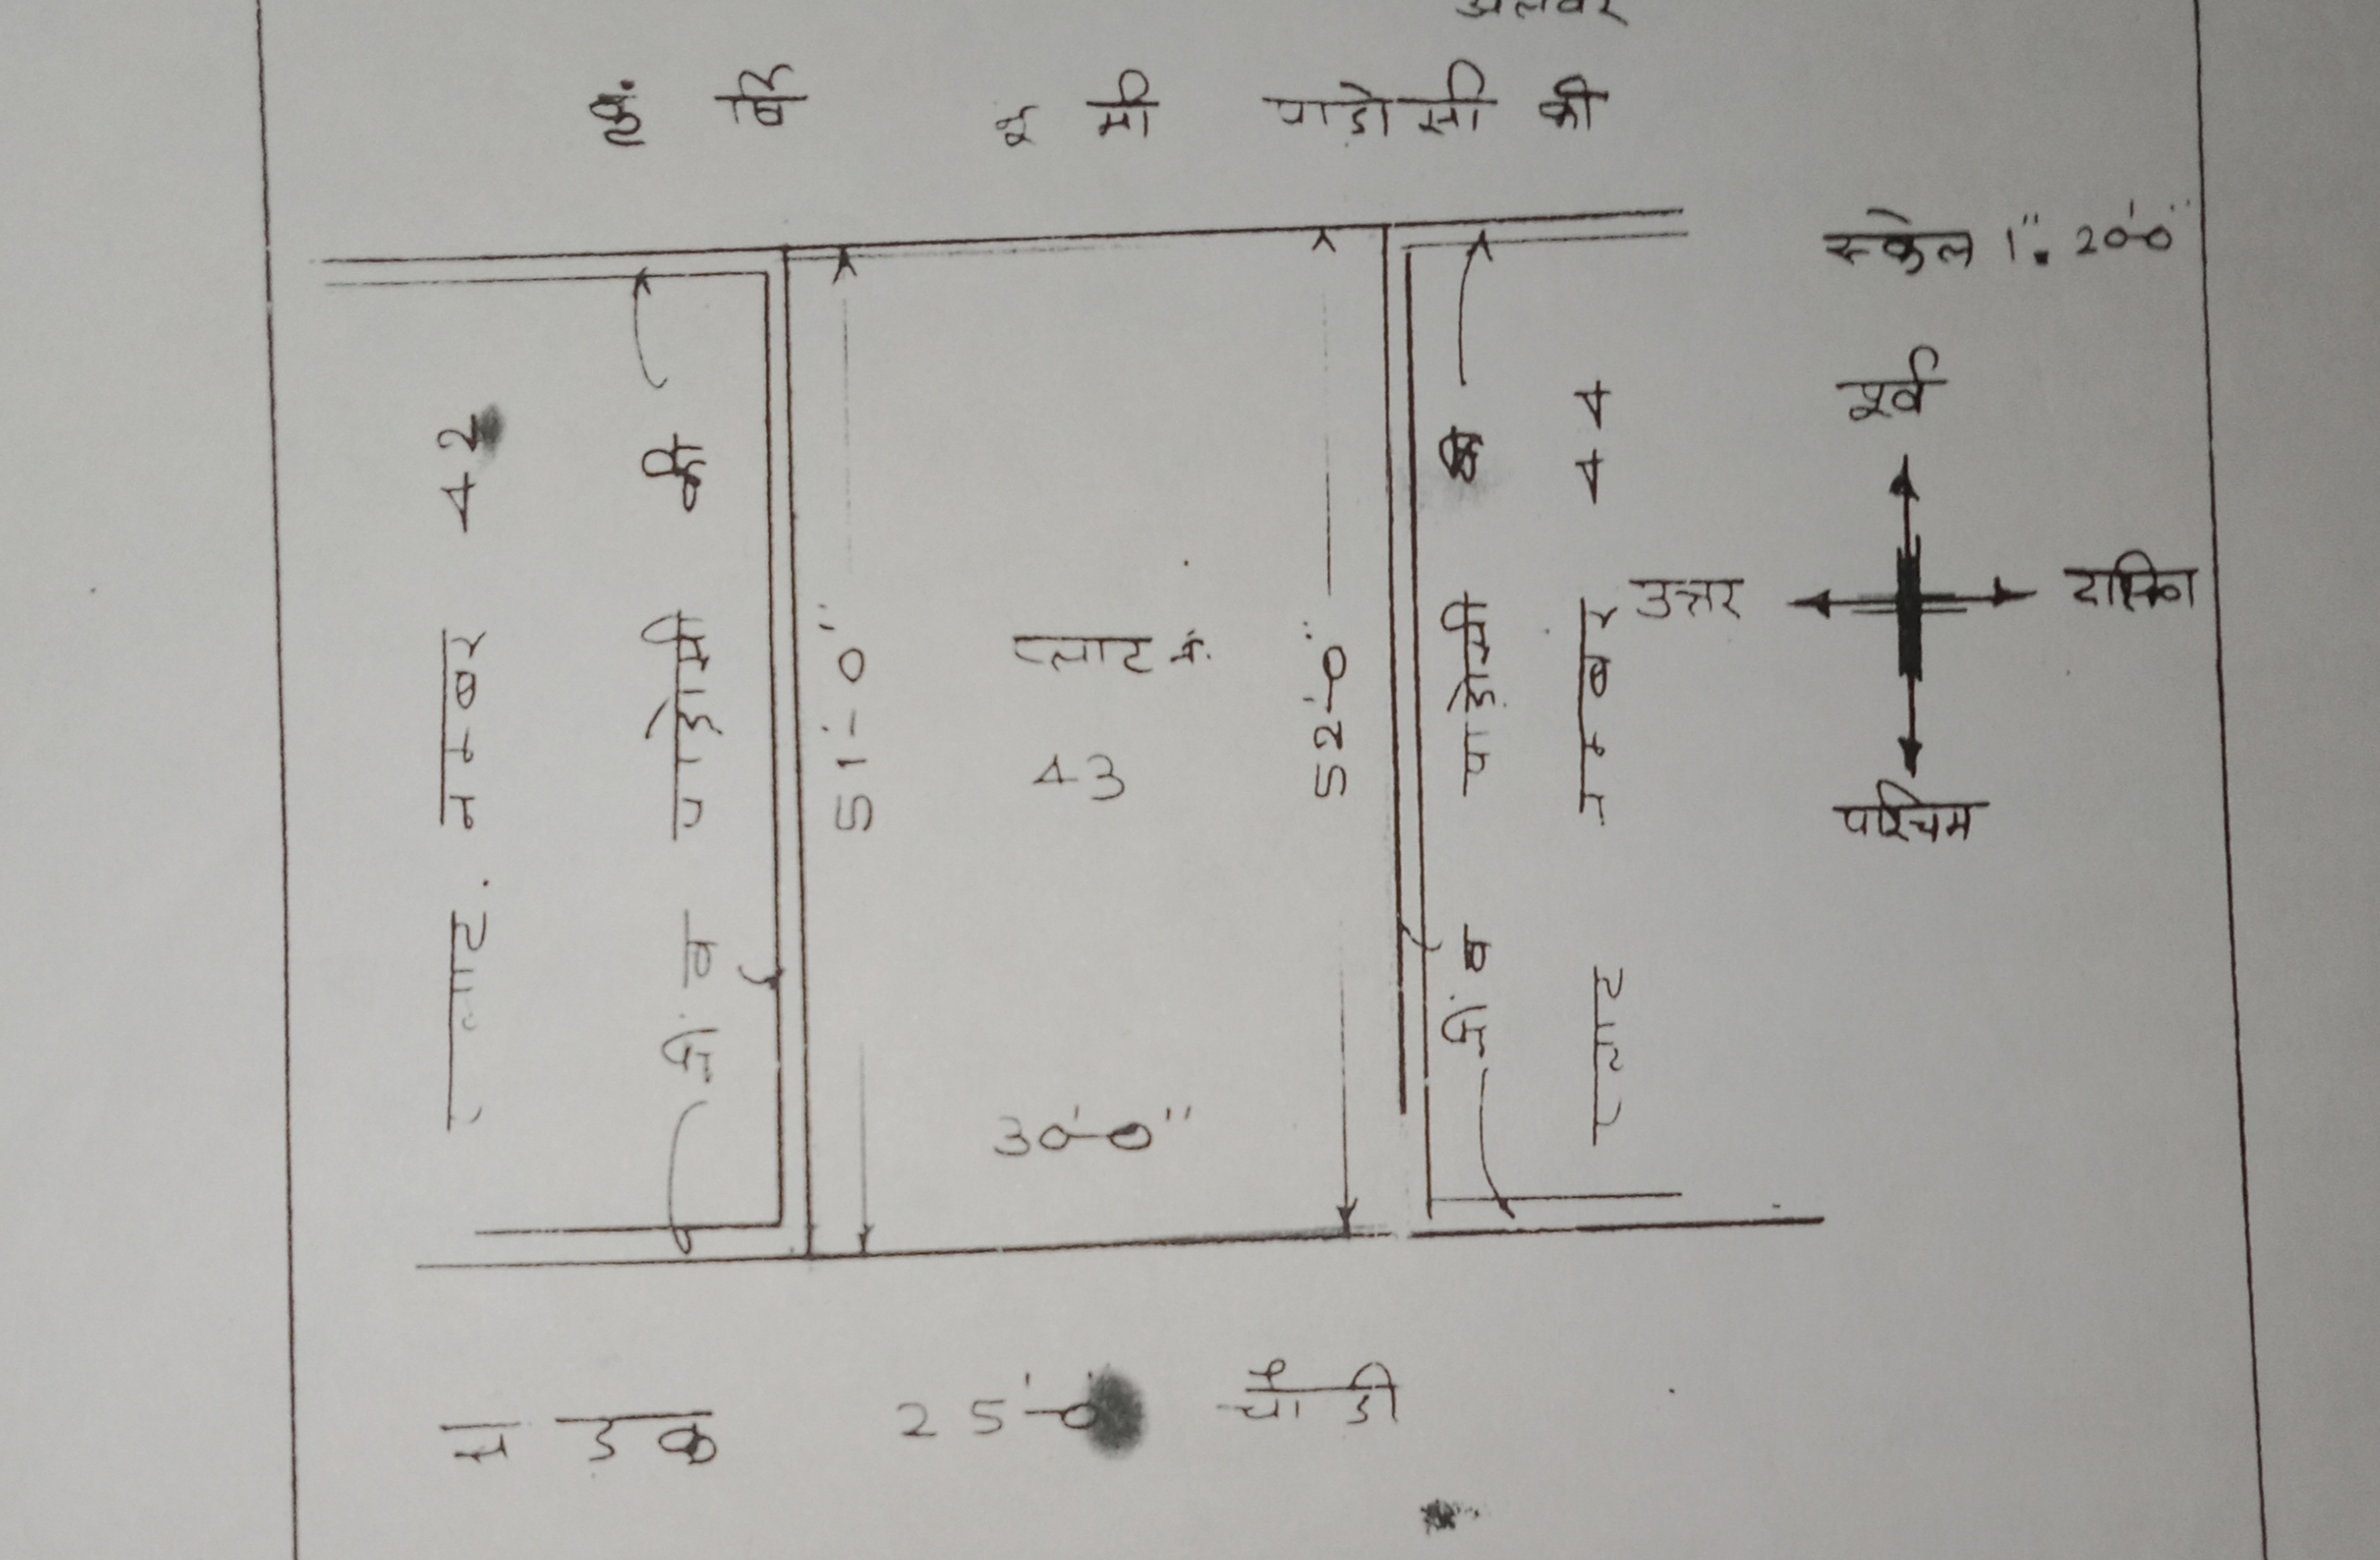 अलवर
कृषि भूमी पाडोसी की
स्केल 1". 20'-0"
पूर्व
उत्तर
दक्षिण
पश्चिम
प्लाट नम्बर 42
नींव पाडोसी की
51'-0"
प्लाट नं.
43
52'-0"
नींव पाडोसी की
प्लाट नम्बर 44
30'-0"
सडक 25'-0" चौडी